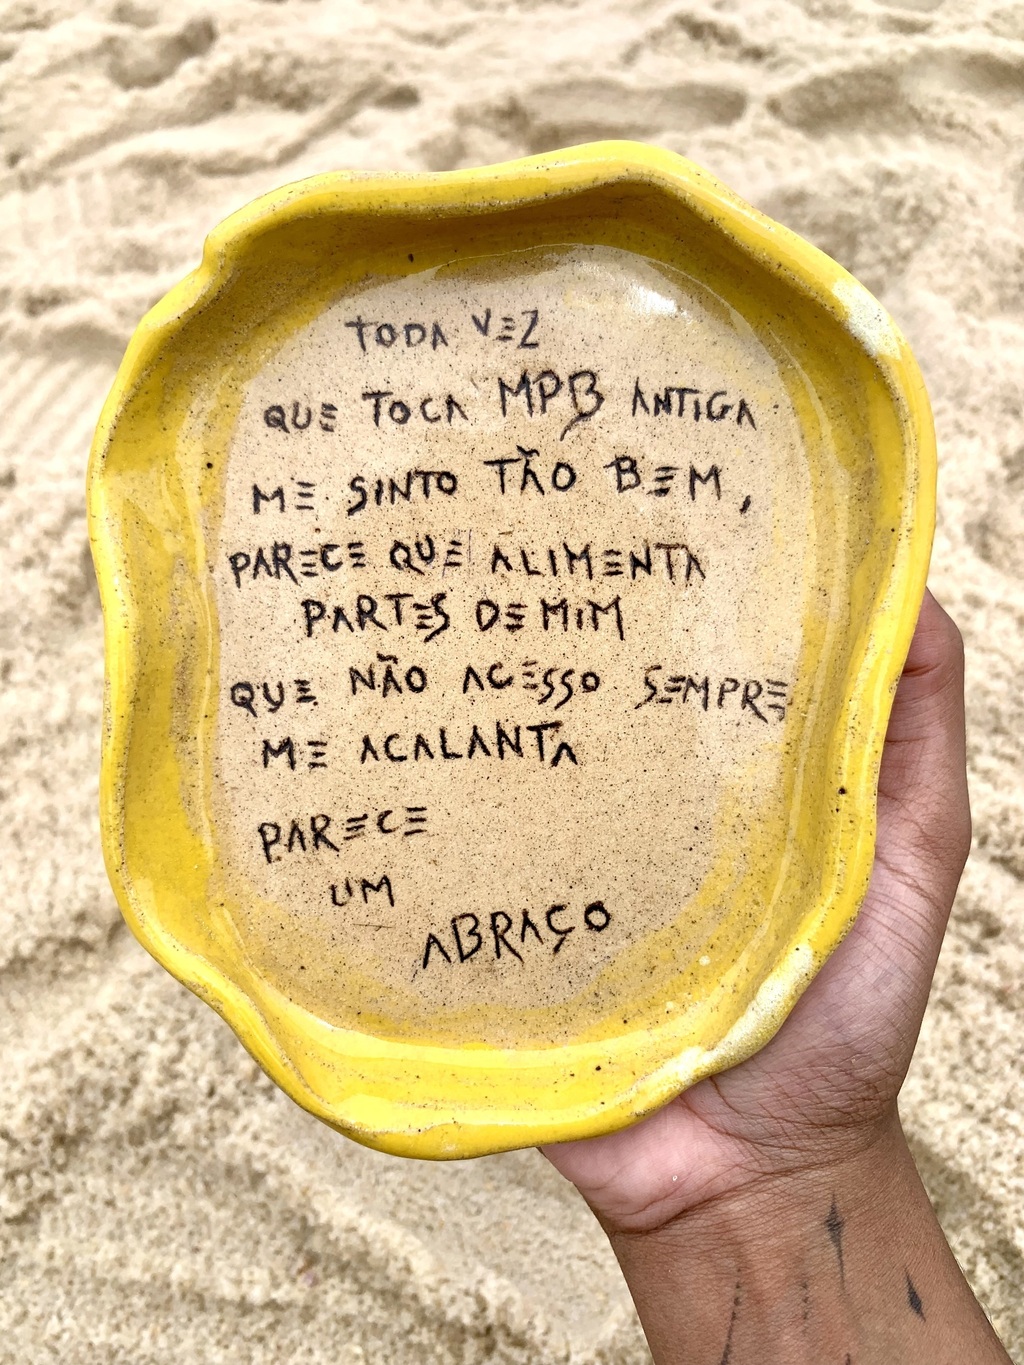 TODA VEZ
QUE TOCA MPB ANTIGA
ME SINTO TÃO BEM,
PARECE QUE ALIMENTA
PARTES DE MIM
QUE NÃO ACESSO SEMPRE
ME ACALANTA
PARECE
UM
ABRAÇO